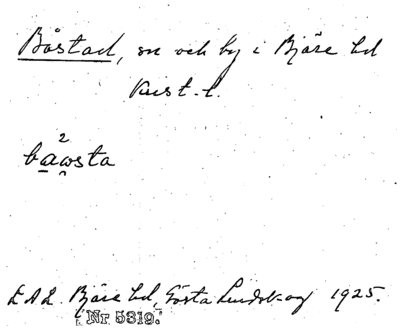 Båstad, sn och by i Bjäre hd
Krist. l.
2
bawsta
L A L. Bjäre hd, Gösta Lundskog 1925.
Nr 5319.